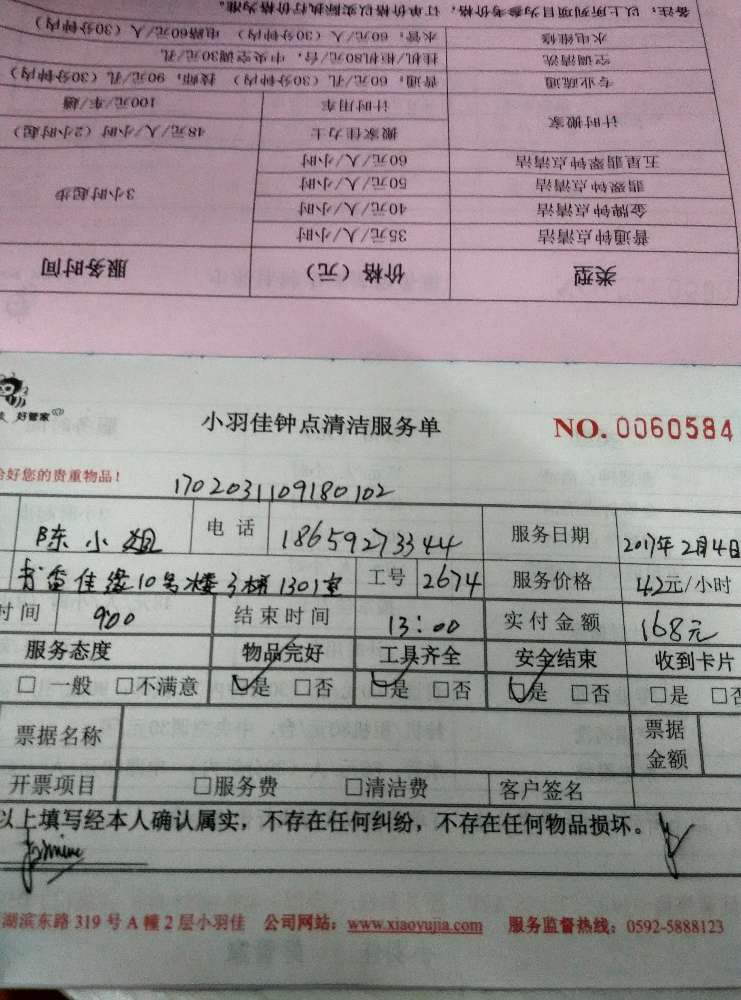 备注：以上所列项目为参考价格，订单价以实际执行价格为准。
水电维修 水管：60元/人（30分钟内） 电路60元/人（30分钟内）
空调清洗 挂机/柜机80元/台，中央空调30元/孔
专业疏通 普通：60元/孔（30分钟内） 技师：90元/孔（30分钟内）
计时用车 100元/车/趟
计时搬家 搬家佳力士 48元/人/小时（2小时起）
五星翡翠钟点清洁 60元/人/小时
翡翠钟点清洁 50元/人/小时 3小时起步
金牌钟点清洁 40元/人/小时
普通钟点清洁 35元/人/小时
类型 价格（元） 服务时间
好管家
小羽佳钟点清洁服务单 NO. 0060584
好您的贵重物品！
1702031109180102
陈小姐 电话 18659273344 服务日期 2017年2月4日
佳缘10号楼3梯1301室 工号 2674 服务价格 42元/小时
时间 900 结束时间 13:00 实付金额 168元
服务态度 物品完好 工具齐全 安全结束 收到卡片
□一般 □不满意 □是 □否 □是 □否 □是 □否 □是 □否
票据名称 票据金额
开票项目 □服务费 □清洁费 客户签名
以上填写经本人确认属实，不存在任何纠纷，不存在任何物品损坏。
湖滨东路319号A幢2层小羽佳 公司网站：www.xiaoyujia.com 服务监督热线：0592-5888123